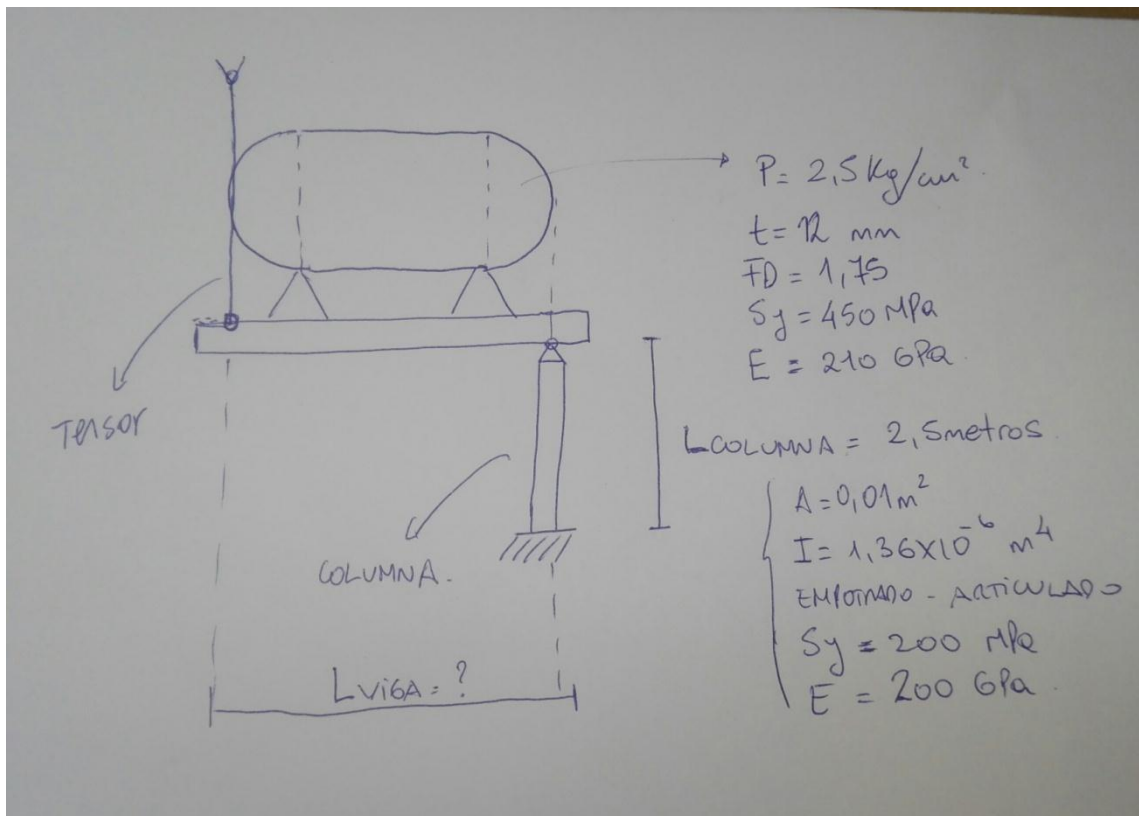 P= 2,5 Kg/cm².
t= 12 mm
FD = 1,75
Sy = 450 MPa
E = 210 GPa.
Tensor
LCOLUMNA = 2,5 metros.
A = 0,01 m²
I = 1,36X10⁻⁶ m⁴
EMPOTRADO - ARTICULADO
Sy = 200 MPa
E = 200 GPa.
COLUMNA.
LVIGA = ?